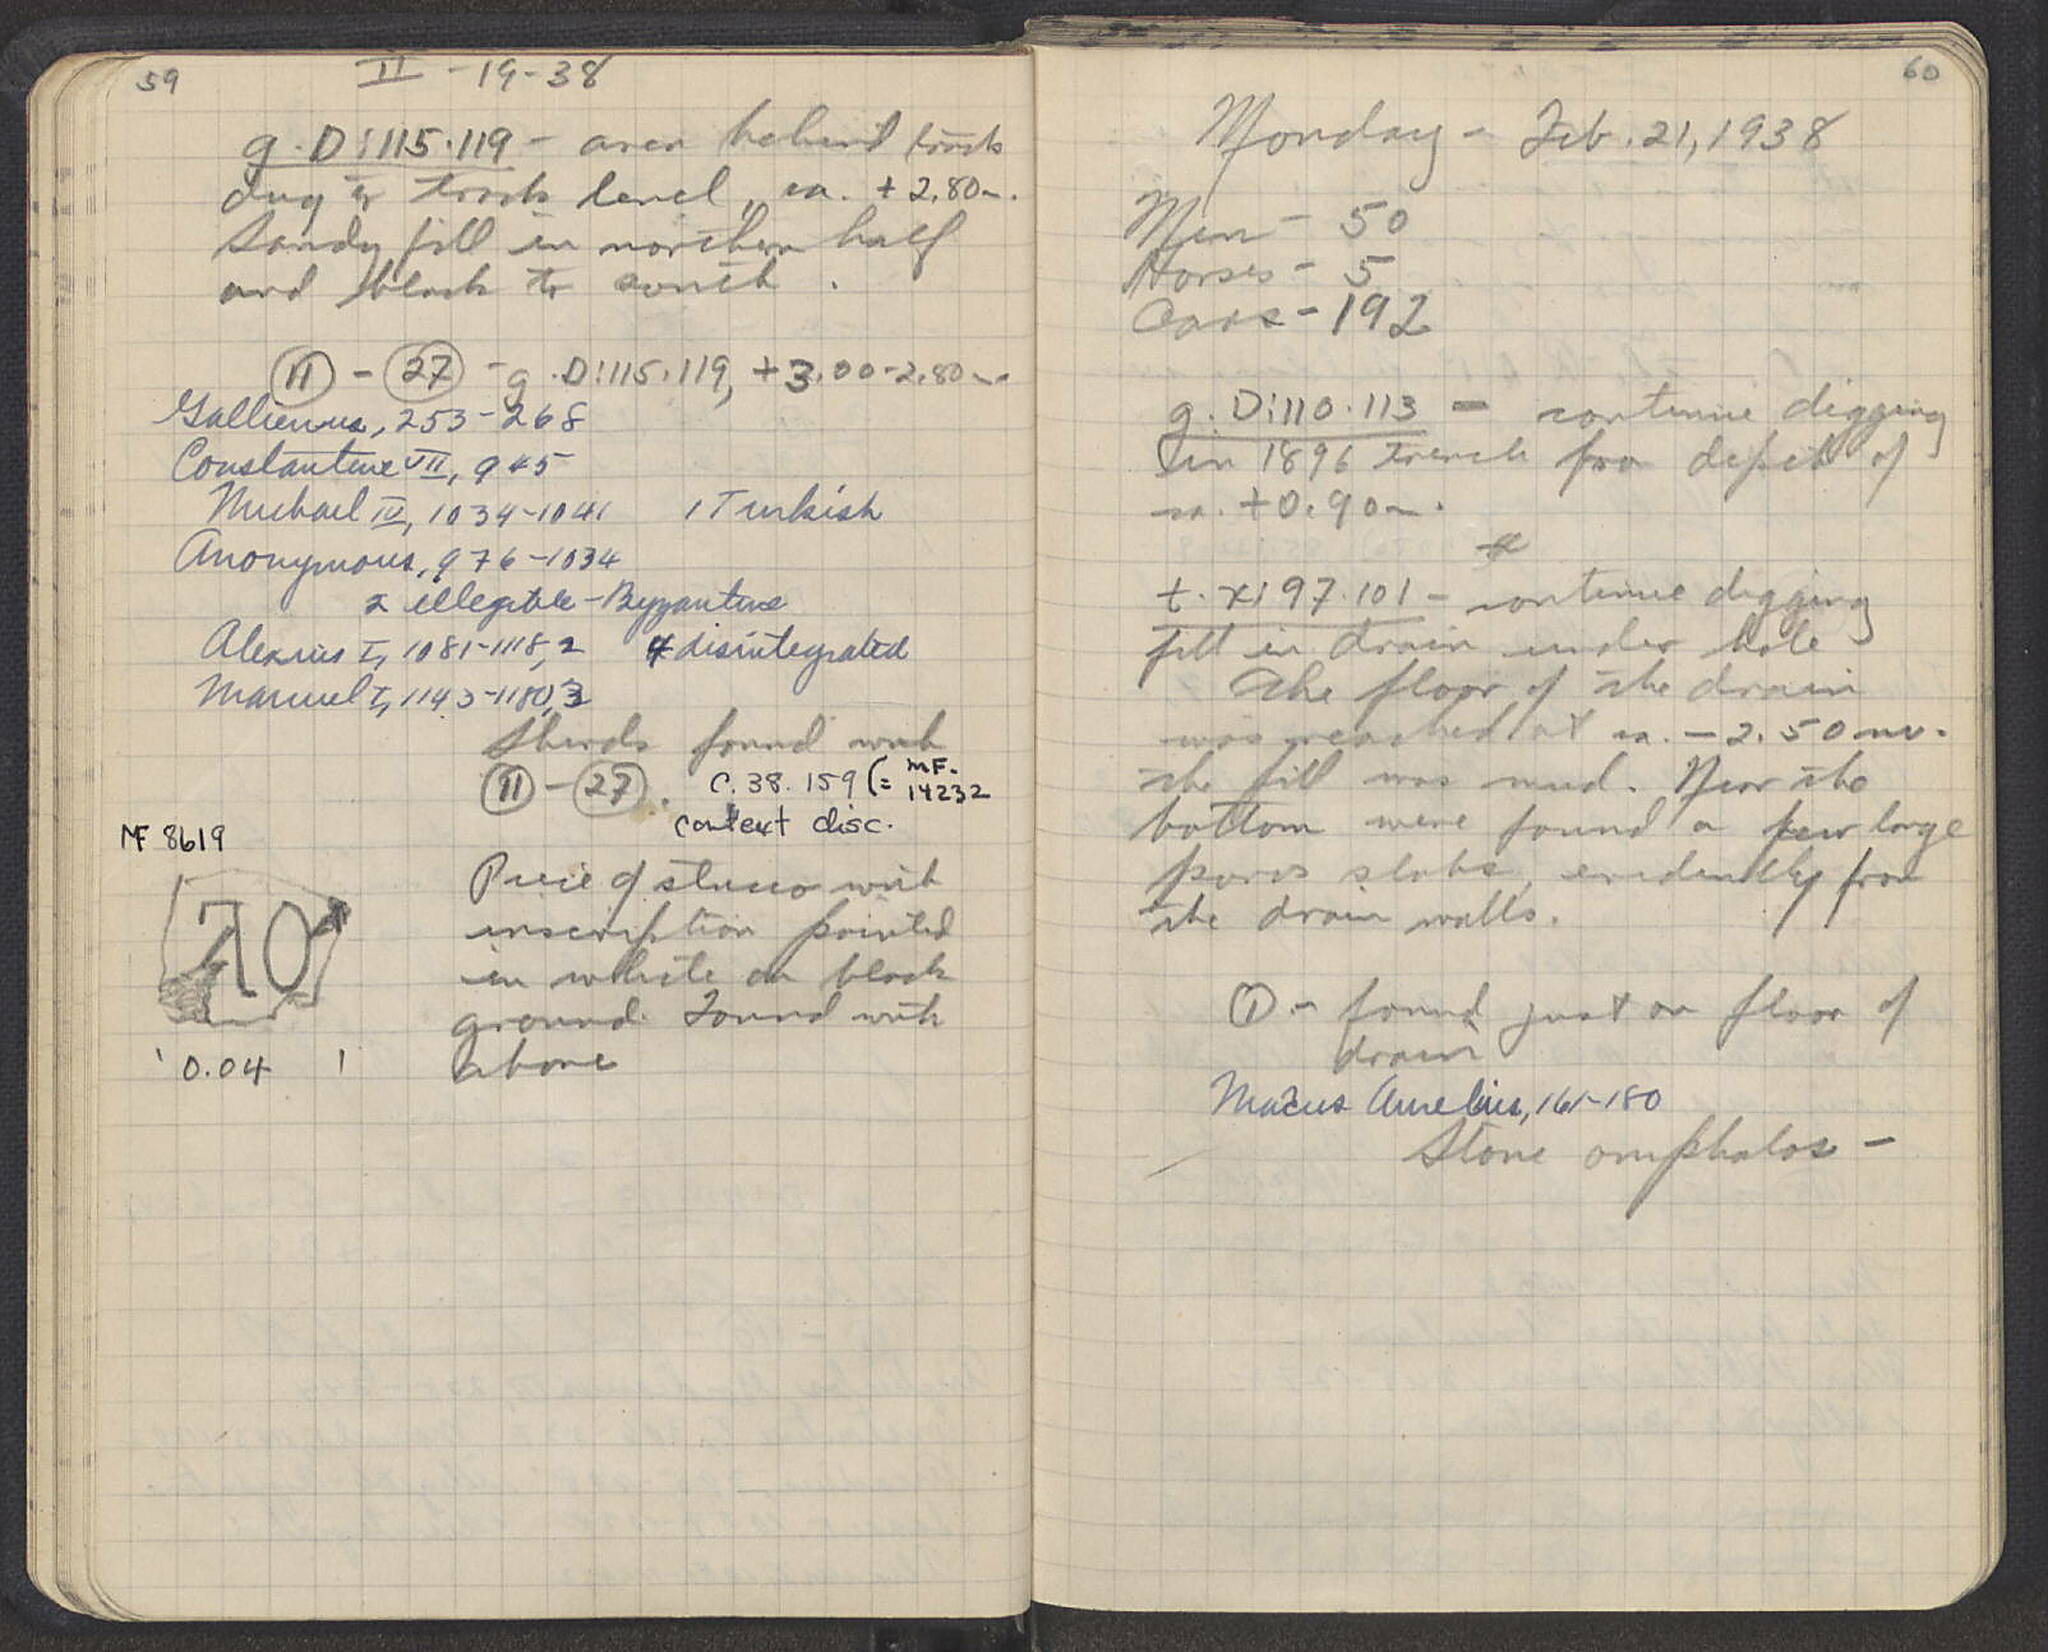 59
II - 19 - 38
g. D:115.119 - area behind track
dug to track level, ca. + 2.80m.
Sandy fill in northern half
and black to south.
(11) - (27) - g. D:115.119, +3.00-2.80m.
Gallienus, 253-268
Constantine VII, 945
Michael IV, 1034-1041 1 Turkish
Anonymous, 976-1034
2 illegible - Byzantine
Alexius I, 1081-1118, 2 4 disintegrated
Manuel I, 1143-1180, 3
Sherds found with
(11) - (27). C. 38. 159 (= MF-
14232
context disc.
MF 8619
Piece of stucco with
inscription painted
in white on black
ground. Found with
above
0.04
60
Monday - Feb. 21, 1938
Men - 50
Horses - 5
Cars - 192
g. D:110.113 - continue digging
in 1896 trench from depth of
ca. +0.90m.
t. X:97.101 - continue digging
fill in drain under hole
The floor of the drain
was reached at ca. - 2.50 m.
The fill was mud. Near the
bottom were found a few large
poros slabs, evidently from
the drain walls.
(1) - found just on floor of
drain
Marcus Aurelius, 161-180
Stone omphalos -